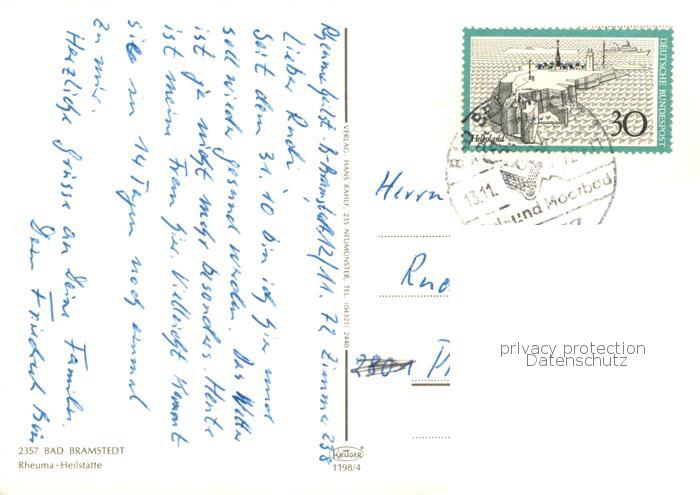 Rheumaheilst. B-Bramstedt, 12/11. 72 Zimmer 238
Lieber Rudi
Seit dem 31.10 bin ich hier und
soll wieder gesund werden. Das Wetter
ist ja nicht mehr besonders. Heute
ist meine Frau hier. Vielleicht kommt
sie in 14 Tagen noch einmal
zu mir.
Herzliche Grüsse an Deine Familie.
Dein Friedrich
2357 BAD BRAMSTEDT
Rheuma-Heilstätte
VERLAG HANS RAHLF, 235 NEUMÜNSTER, TEL. (04321) 2440
KRÜGER
1198/4
DEUTSCHE BUNDESPOST
Helgoland
30
13.11.
und Moorbad
Herrn
2801
privacy protection
Datenschutz